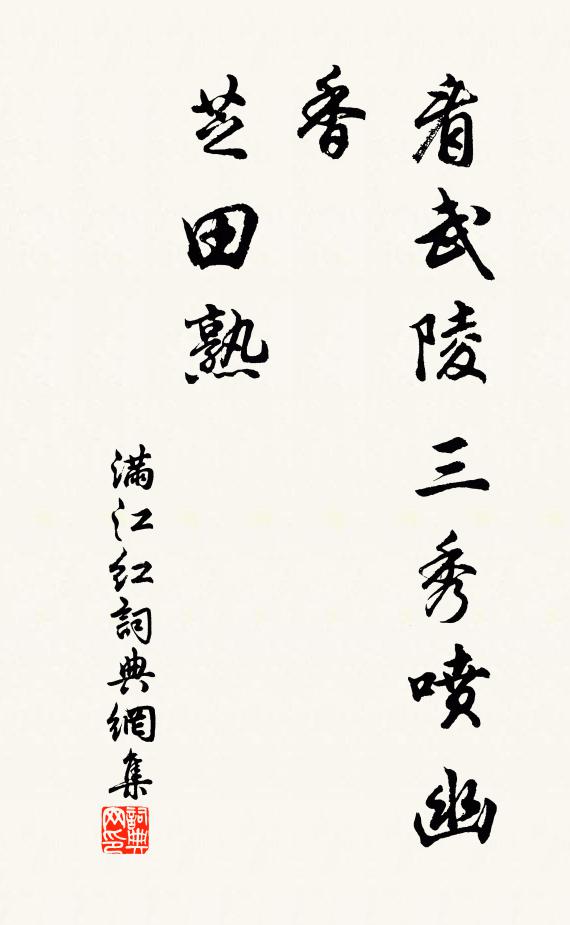 看武陵三秀噴幽
香
芝田熟
滿江红詞典網集
詞典网印